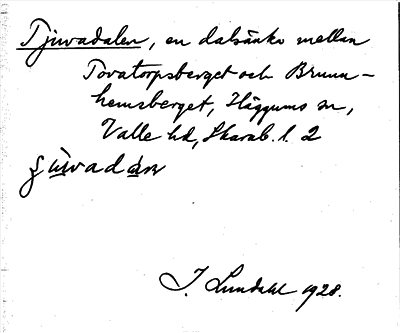 Tjuvadalen, en dalsänka mellan
Tovatorpsberget och Brunn-
hemsberget, Häggums sn,
Valle hd, Skarab. l. 2

J. Lundahl 1928.